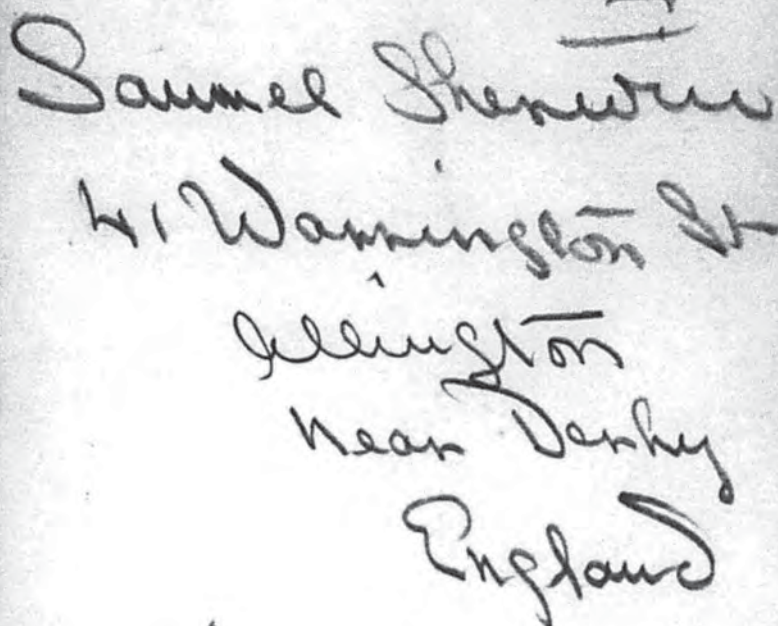 Samuel Sherwin
41 Warrington St
near Derby
England